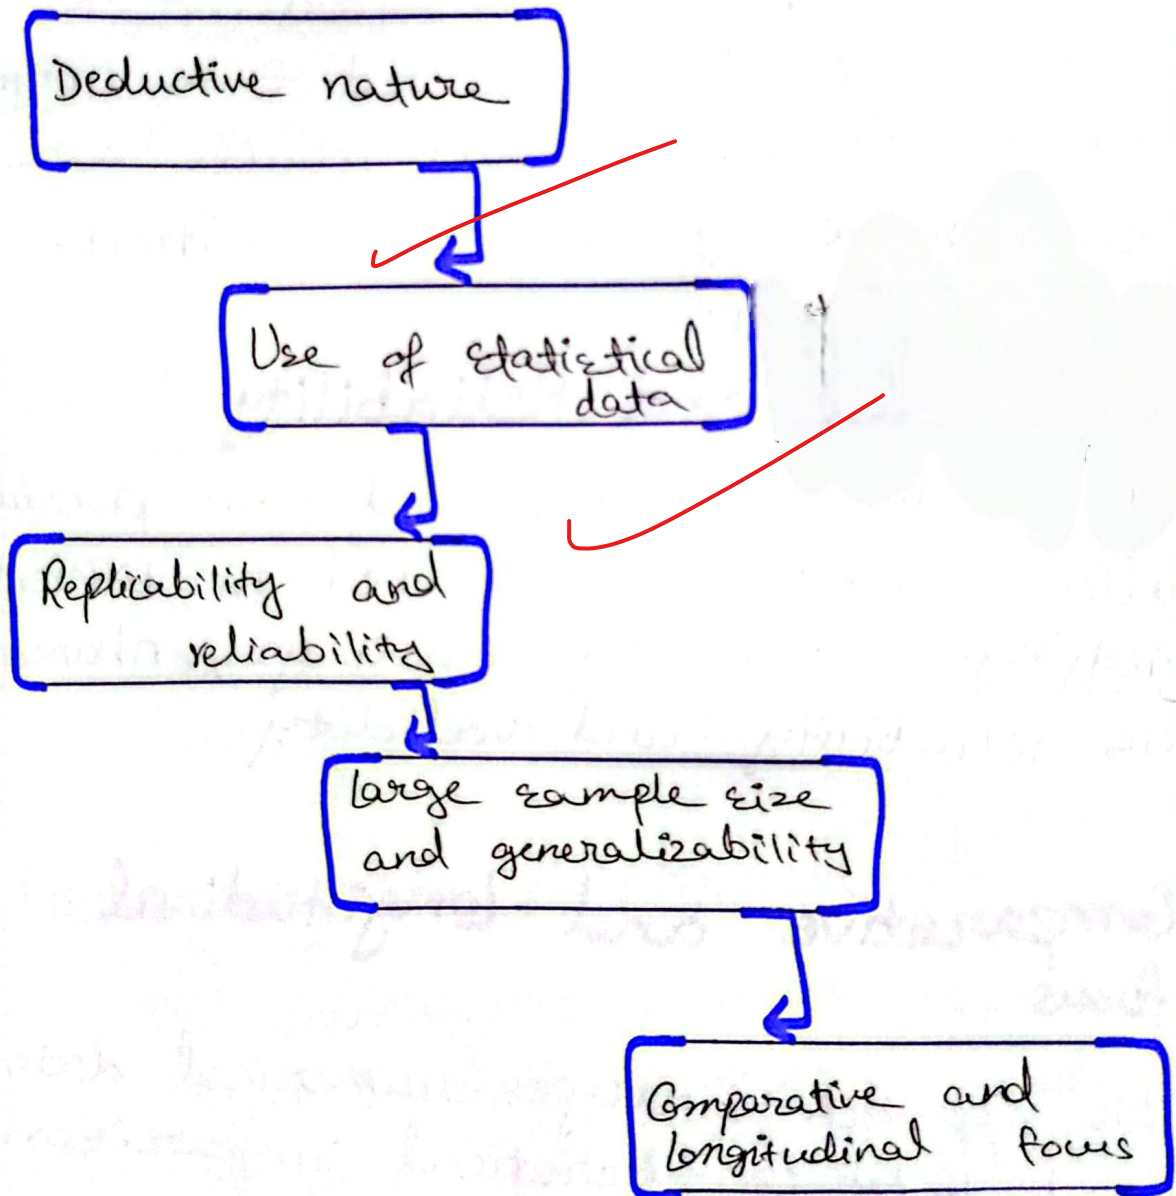 Deductive nature
Use of statistical
data
Replicability and
reliability
Large sample size
and generalizability
Comparative and
Longitudinal focus